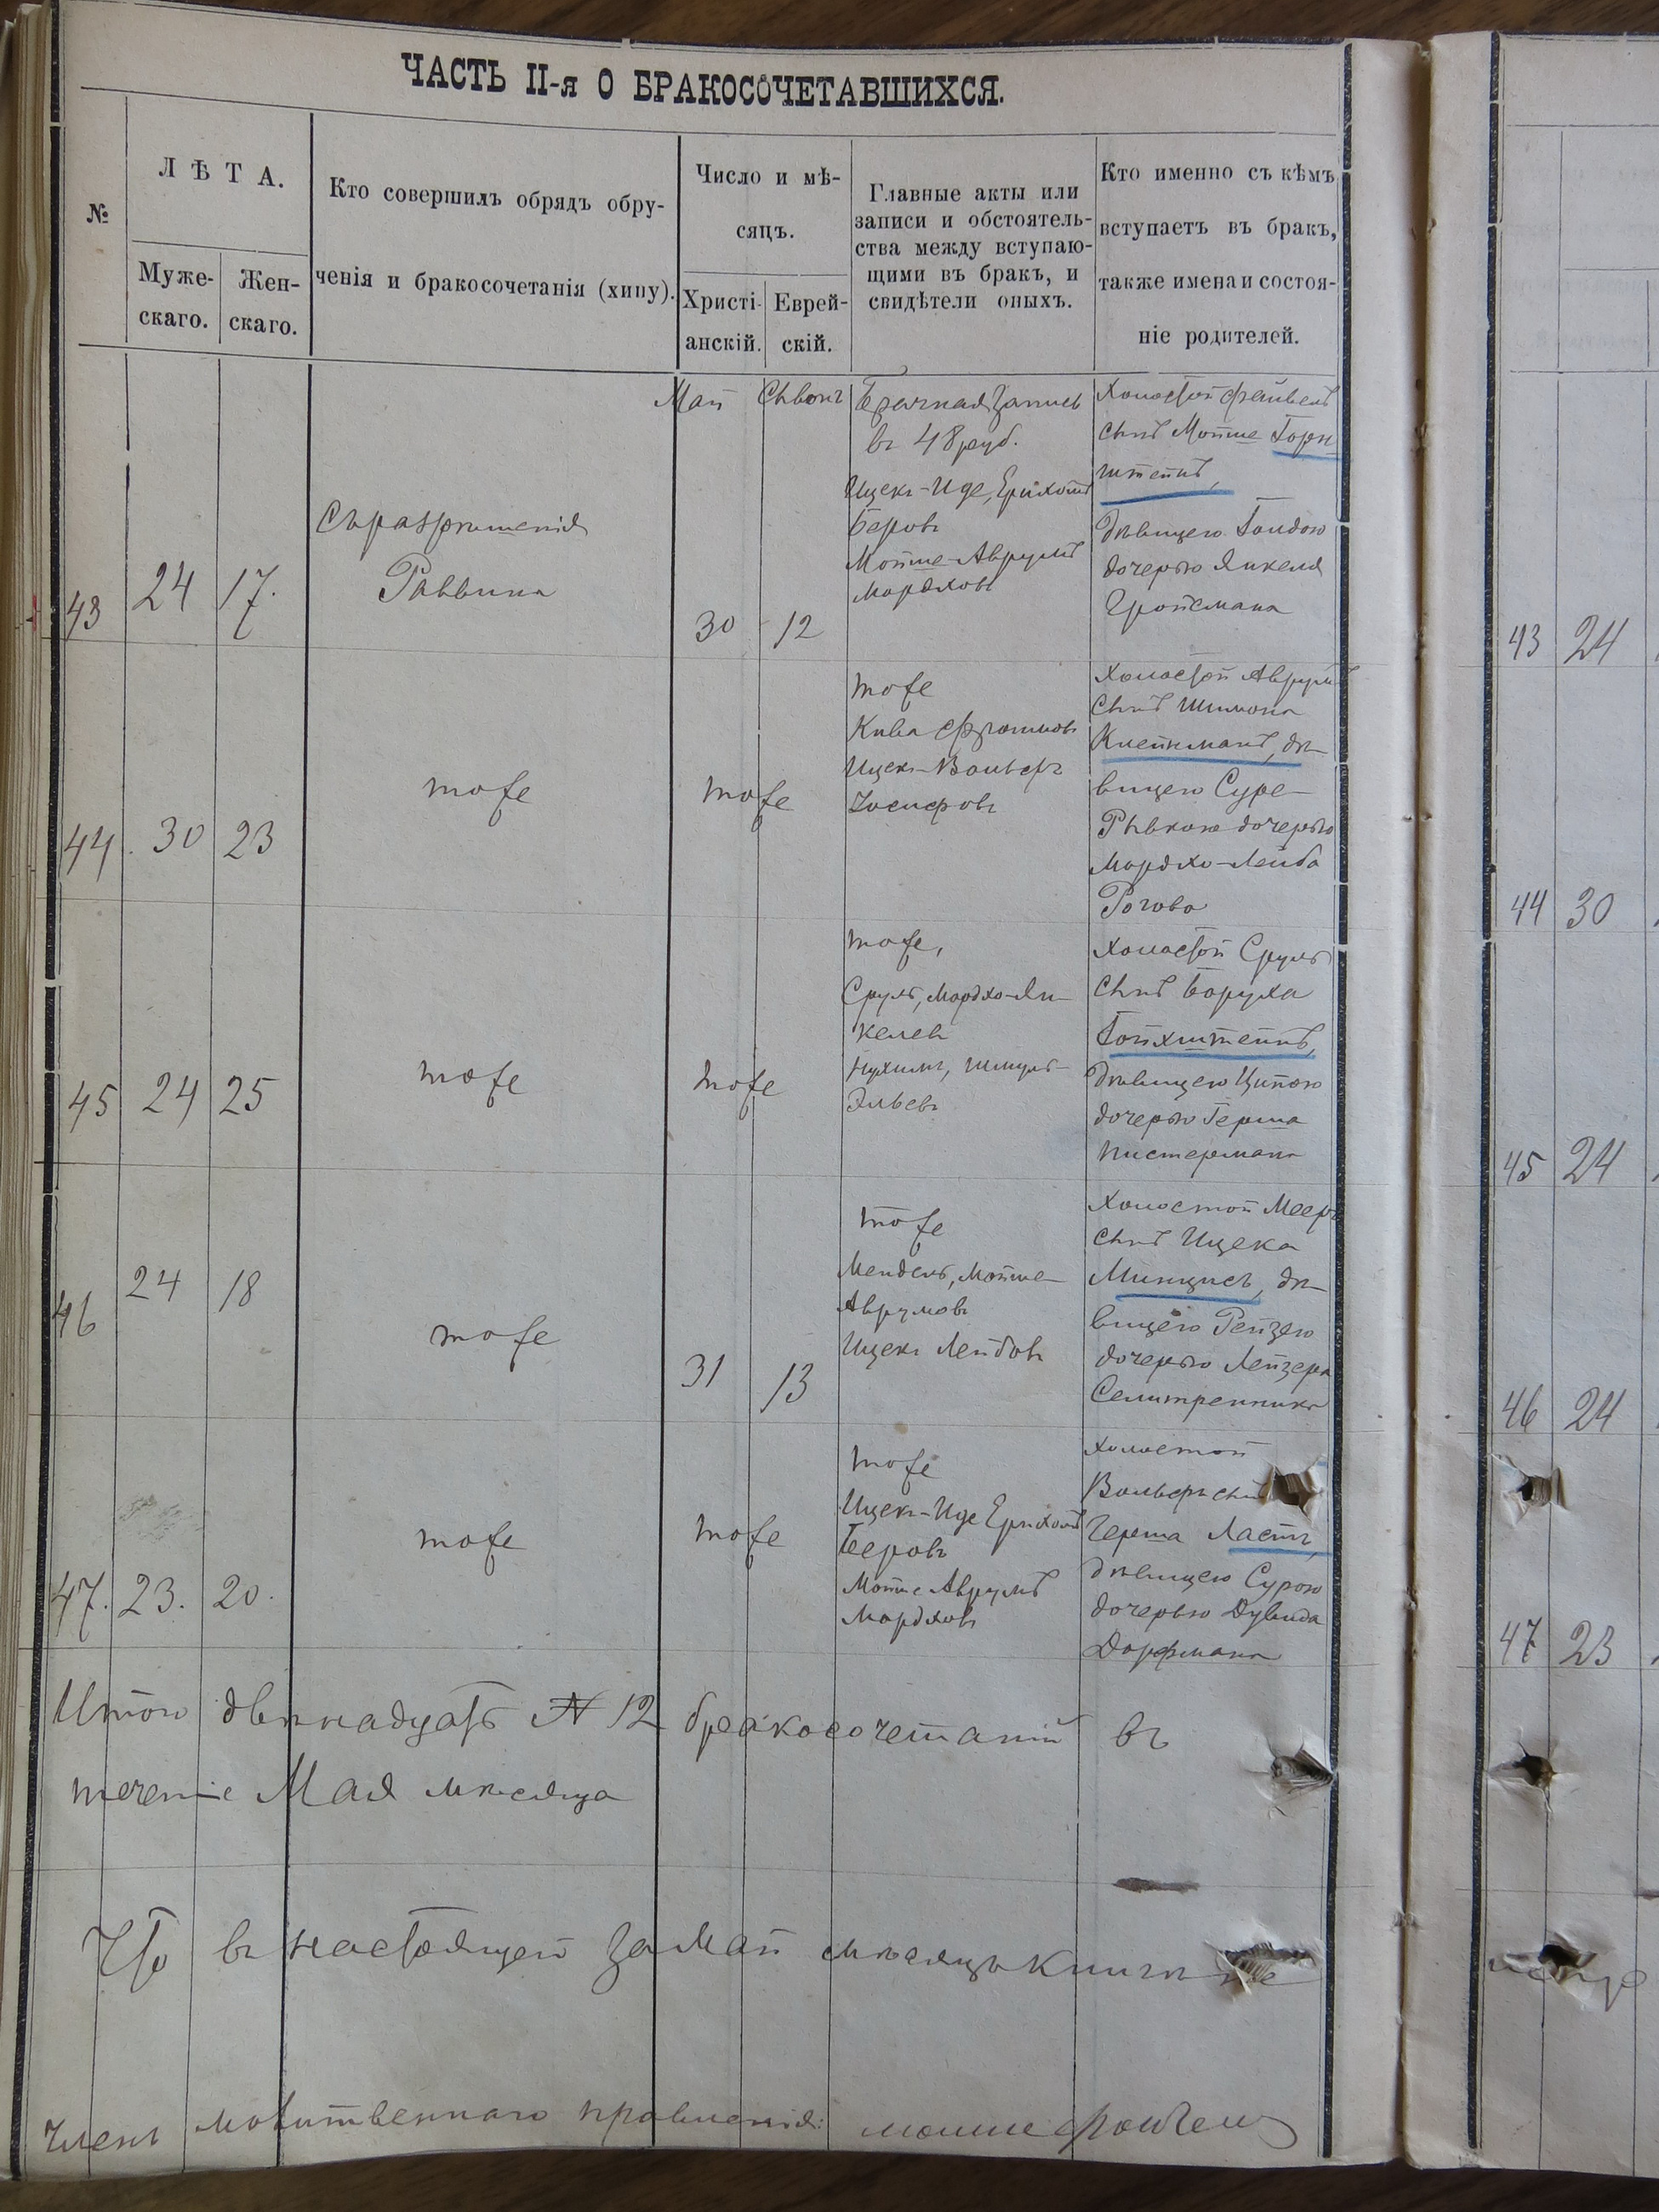 ЧАСТЬ II-я О БРАКОСОЧЕТАВШИХСЯ.
№
ЛѢТА.
Муже-
скаго.
Жен-
скаго.
Кто совершилъ обрядъ обру-
ченія и бракосочетанія (хипу).
Число и мѣ-
сяцъ.
Христі-
анскій.
Еврей-
скій.
Главные акты или
записи и обстоятель-
ства между вступаю-
щими въ бракъ, и
свидѣтели оныхъ.
Кто именно съ кѣмъ
вступаетъ въ бракъ,
также имена и состоя-
ніе родителей.
43
24
17.
Съ разрѣшенія
Раввина
Май
30
Сивонъ
12
Брачная запись
въ 48 руб.
Ицекъ-Иде, Ерихомъ
Беровъ
Мойше-Аврумъ
Мордховъ
Холостой Файвель
сынъ Мойше Горн
штейнъ,
дѣвицею Голдою
дочерью Янкеля
Гройсмана
44
30
23
тоже
тоже
тоже
Кива Фроимовъ
Ицекъ-Вольфъ
Іосифовъ
Холостой Аврумъ
сынъ Шимона
Клейнманъ, дѣ-
вицею Суре-
Ривкою дочерью
Мордхо-Лейба
Рогова
45
24
25
тоже
тоже
тоже,
Сруль, Мордхо-Ян-
келев
Нухимъ, Шмуль-
Эльевъ
Холостой Сруль
сынъ Боруха
Гойхштейнъ,
дѣвицею Ципою
дочерью Герша
Пистермана
46
24
18
тоже
31
13
тоже
Мендель, Мойше-
Аврумовъ
Ицекъ Лейбовъ
Холостой Мееръ
сынъ Ицека
Минцисъ, дѣ-
вицею Рейзею
дочерью Лейзера
Селитренника
47.
23.
20.
тоже
тоже
тоже
Ицекъ-Иде Ерихомъ
Бееровъ
Мойше Аврумъ
Мордховъ
Холостой
Вольфъ сынъ
Герша Ластъ,
дѣвицею Сурою
дочерью Дувида
Дорфмана
Итого двѣнадцать № 12 бракосочетаній въ
теченіе Мая мѣсяца
Что въ настоящей за Май мѣсяцъ книгѣ не
Членъ молитвеннаго правленія: мошше
43
24
44
30
45
24
46
24
47
23